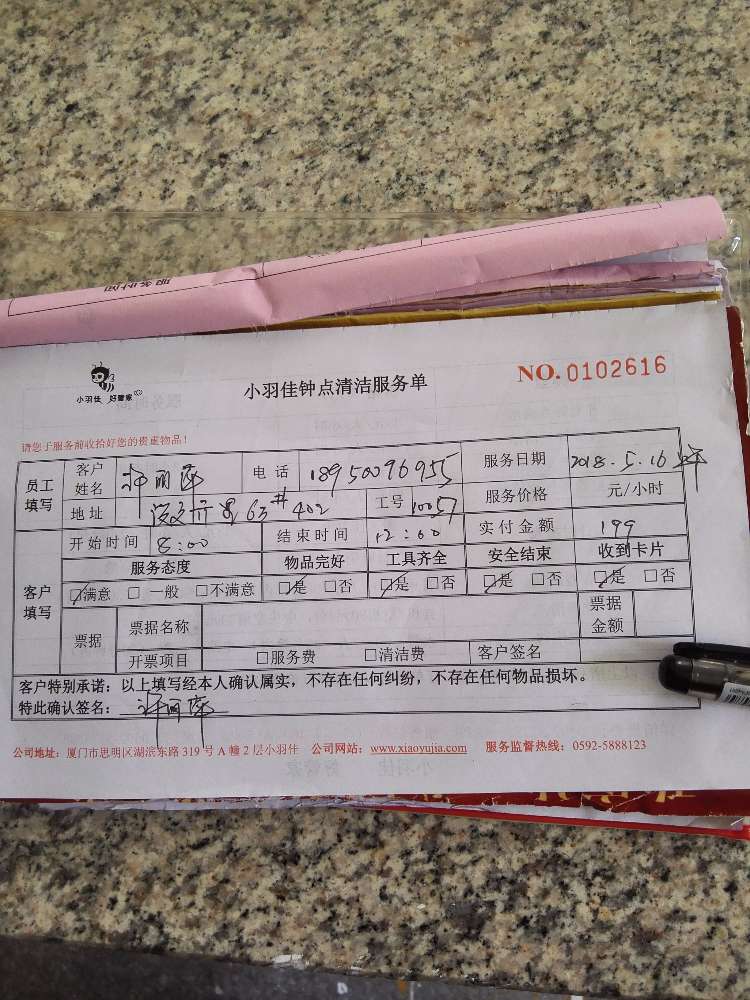 服务时间
小羽佳 好管家
小羽佳钟点清洁服务单
NO. 0102616
请您于服务前收拾好您的贵重物品！
员工填写 客户姓名 许丽萍 电话 18950096955 服务日期 2018.5.16
地址 63# 402 工号 10057 服务价格 元/小时
客户填写 开始时间 8:00 结束时间 12:00 实付金额 199
服务态度 物品完好 工具齐全 安全结束 收到卡片
☑满意 □ 一般 □不满意 ☑是 □否 ☑是 □否 ☑是 □否 ☑是 □否
票据 票据名称 票据金额
开票项目 □服务费 □清洁费 客户签名
客户特别承诺：以上填写经本人确认属实，不存在任何纠纷，不存在任何物品损坏。
特此确认签名： 许丽萍
公司地址：厦门市思明区湖滨东路 319 号 A 幢 2 层小羽佳 公司网站：www.xiaoyujia.com 服务监督热线：0592-5888123